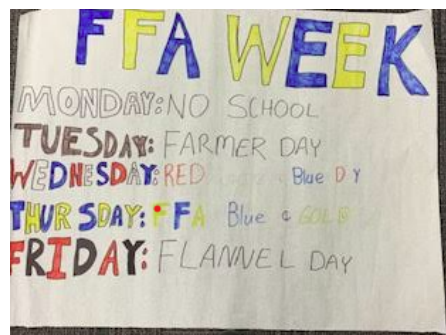 FFA WEEK
MONDAY: NO SCHOOL
TUESDAY: FARMER DAY
WEDNESDAY: RED Blue DY
THURSDAY: FFA Blue & GOLD
FRIDAY: FLANNEL DAY